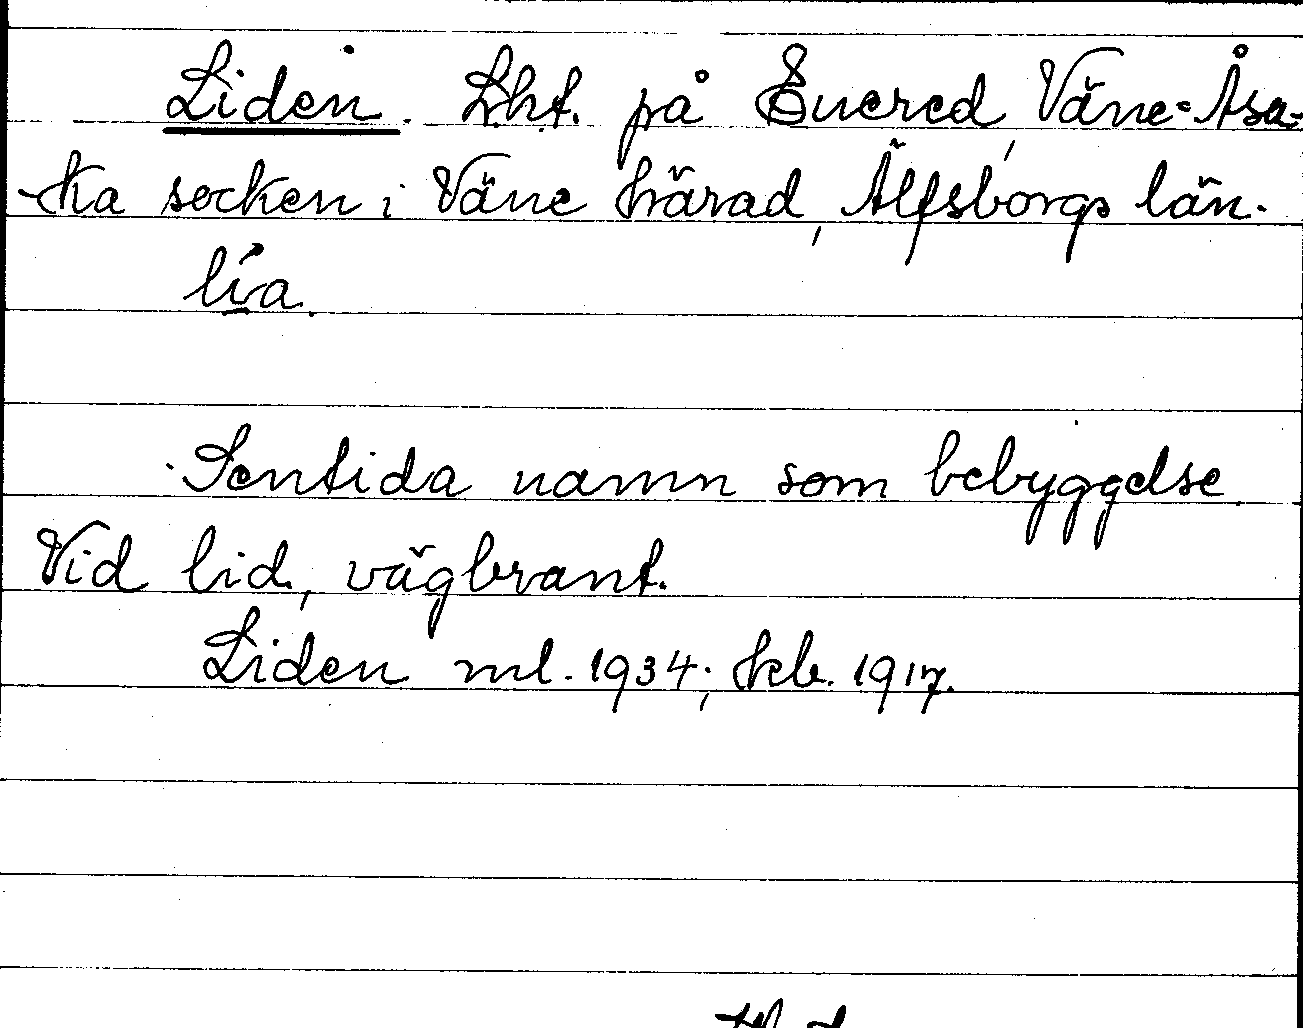 Liden. Lht. på Euered, Väne-Åsa-
ka socken i Väne härad, Älfsborgs län.
lia.
Sentida namn som bebyggelse.
Vid lid, vägbrant.
Liden ml. 1934; hcb. 1917.